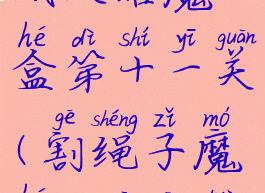 魔
hé dì shí yī guān
盒第十一关
gē shéng zǐ mó
(割绳子魔